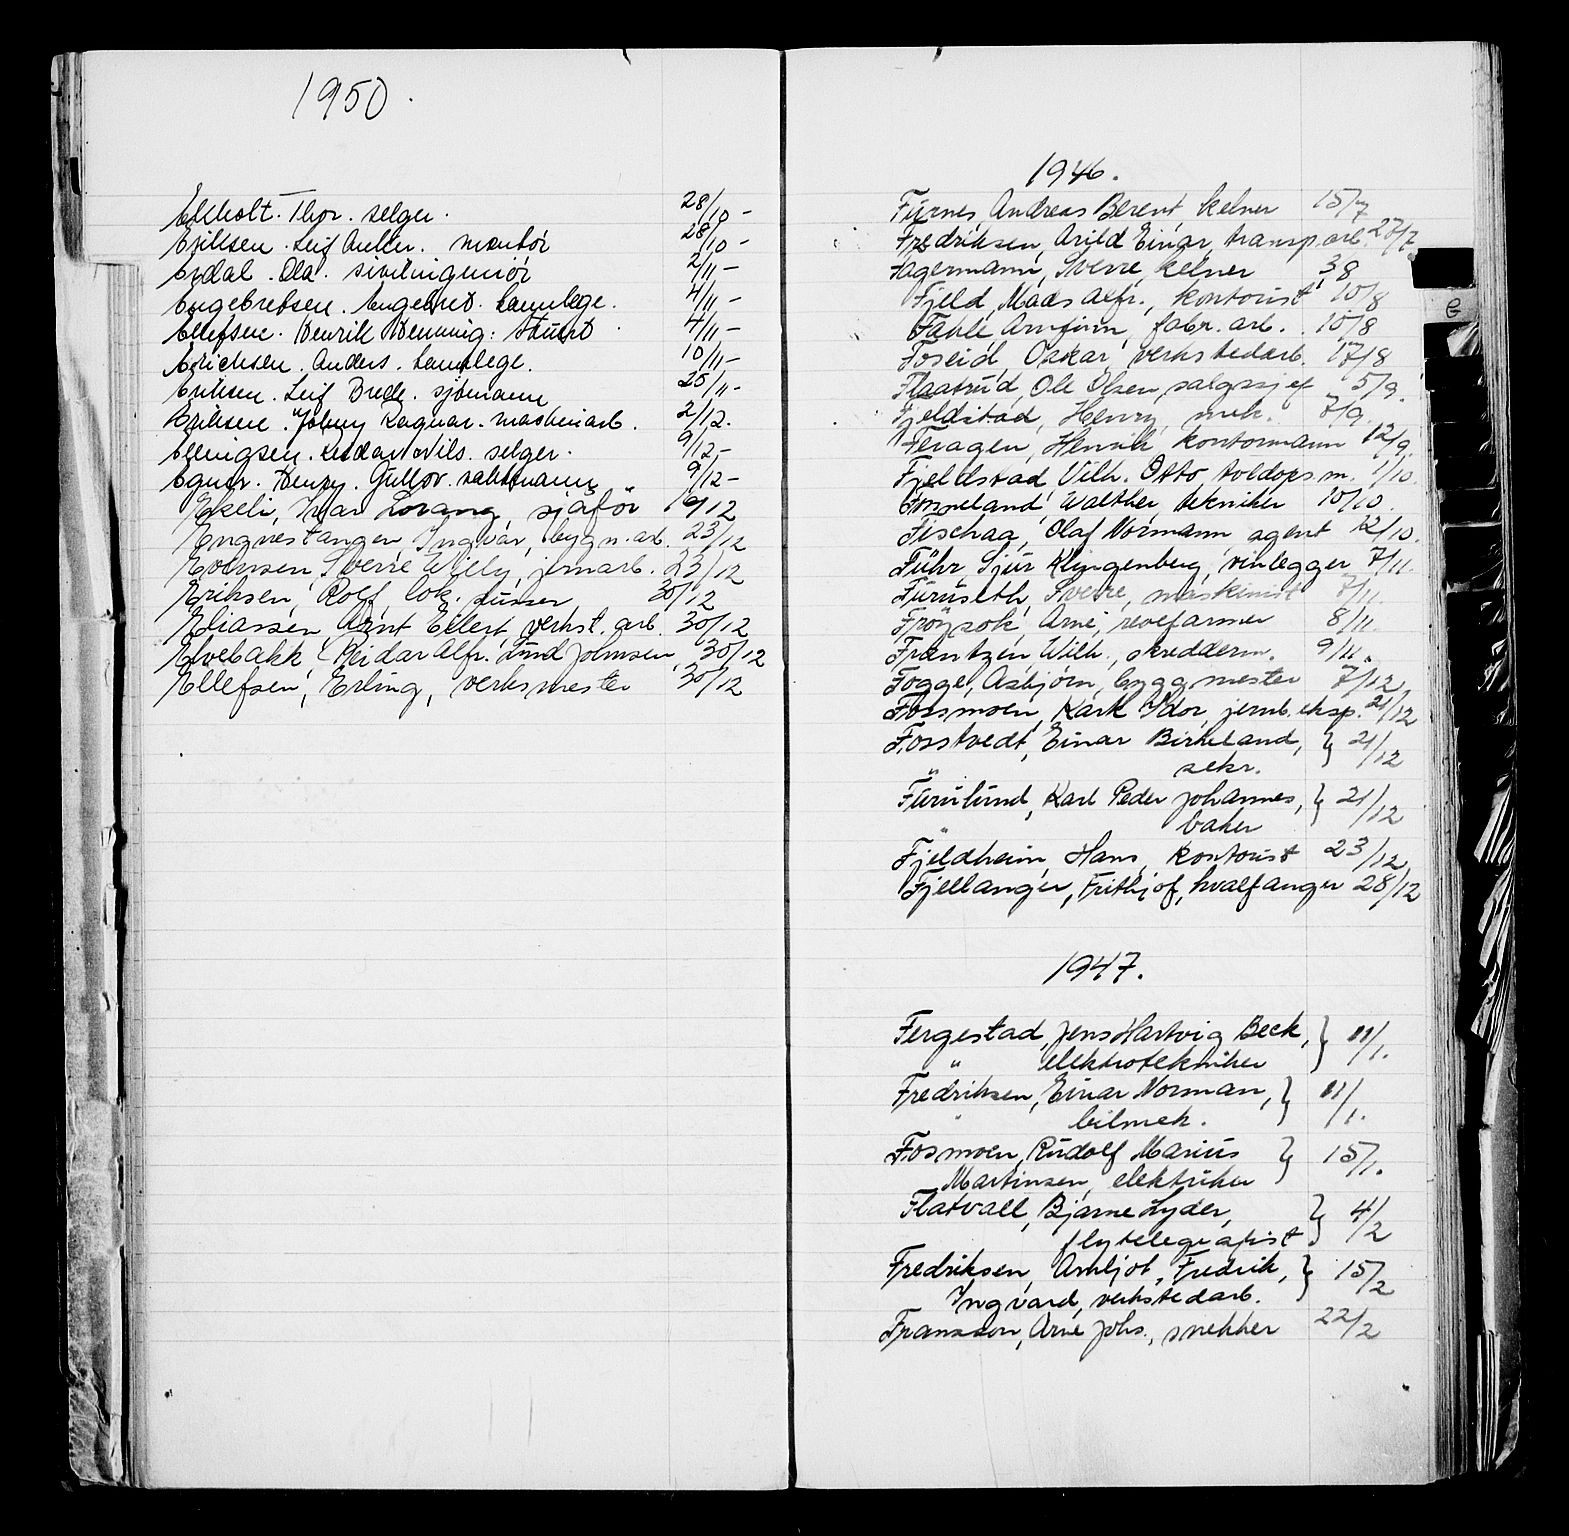 1950.
Ekholt. Thor. selger. 28/10 -
Eriksen. Leif . montør 28/10 -
Eydal. Ola. sivilingeniør 2/11 -
Engebretsen. Engebret. tannlege. 4/11 -
Ellefsen. Henrik Henning: 4/11 -
Erichsen. Anders. tannlege. 10/11 -
Eriksen. Leif Brede. sjømann 25/11 -
Eriksen. Johny Ragnar. maskinarb. 2/12.
Ellingsen. Reidar Nils. selger. 9/12 -
Egner. Henry. Gullov. 9/12 -
Ekeli, Ivar Lorang, sjåfør 19/12
Engnestangen Ingvar, bygn. arb. 23/12
Evensen, Sverre Willy, jernarb. 23/12
Eriksen, Rolf, lok. pusser 30/12
Eliassen, Arnt Edlert, verkst. arb. 30/12
Elvebakk, Reidar Alfr. Lund Johnsen, 30/12
Ellefsen, Erling, verksmester 30/12
1946.
Furnes Andreas Berent kelner 15/7
Fredriksen, Arild Einar, transp. arb. 27/7
Fagermann, Sverre, kelner 3/8
Fjeld, Mads Alfr., kontorist 10/8
Fahle Arnfinn, fabr. arb. 10/8
Foseid, Oskar, verkstedarb. 17/8
Flaatrud, Ole Olsen, salgssjef 5/9.
Fjeldstad, Henry, mek. 7/9.
Feragen, Henrik kontormann 12/9.
Fjeldstad, Vilh. Otto, toldops.m. 1/10.
Fosseland, Walther tekniker 10/10.
Fischaa, Olaf Normann, agent 12/10.
Führ Sjur Klingenberg, rørlegger 7/11.
Furuseth, Sverre, maskinist 7/11.
Frøysok, Arne, revefarmer 8/11
Frantzen, Wilh., skredderm. 9/11.
Fogge, Asbjørn, byggmester 7/12,
Forsmoen, Karl Idor, jernb. eksp. 21/12
Fosstvedt, Einar Birkeland, } 21/12
" sekr.
Furulund, Karl Peder Johannes, } 21/12
" baker
Fjeldheim, Hans, kontorist 23/12,
Fjellanger, Frithjof, hvalfanger 28/12
1947.
Fergestad, Jens Hartvig Beck, } 11/1.
" elektrotekniker
Fredriksen, Einar Norman, } 11/1.
" bilmek.
Fosmoen, Rudolf Marius } 15/1.
Martinsen, elektriker
Flatvall, Bjarne Lyder, } 4/2
flytelegrafist
Fredriksen, Arnljot, Fredrik, } 15/2
Ingvard, verkstedarb.
Fransson, Arne Johs., snekker 22/2
e